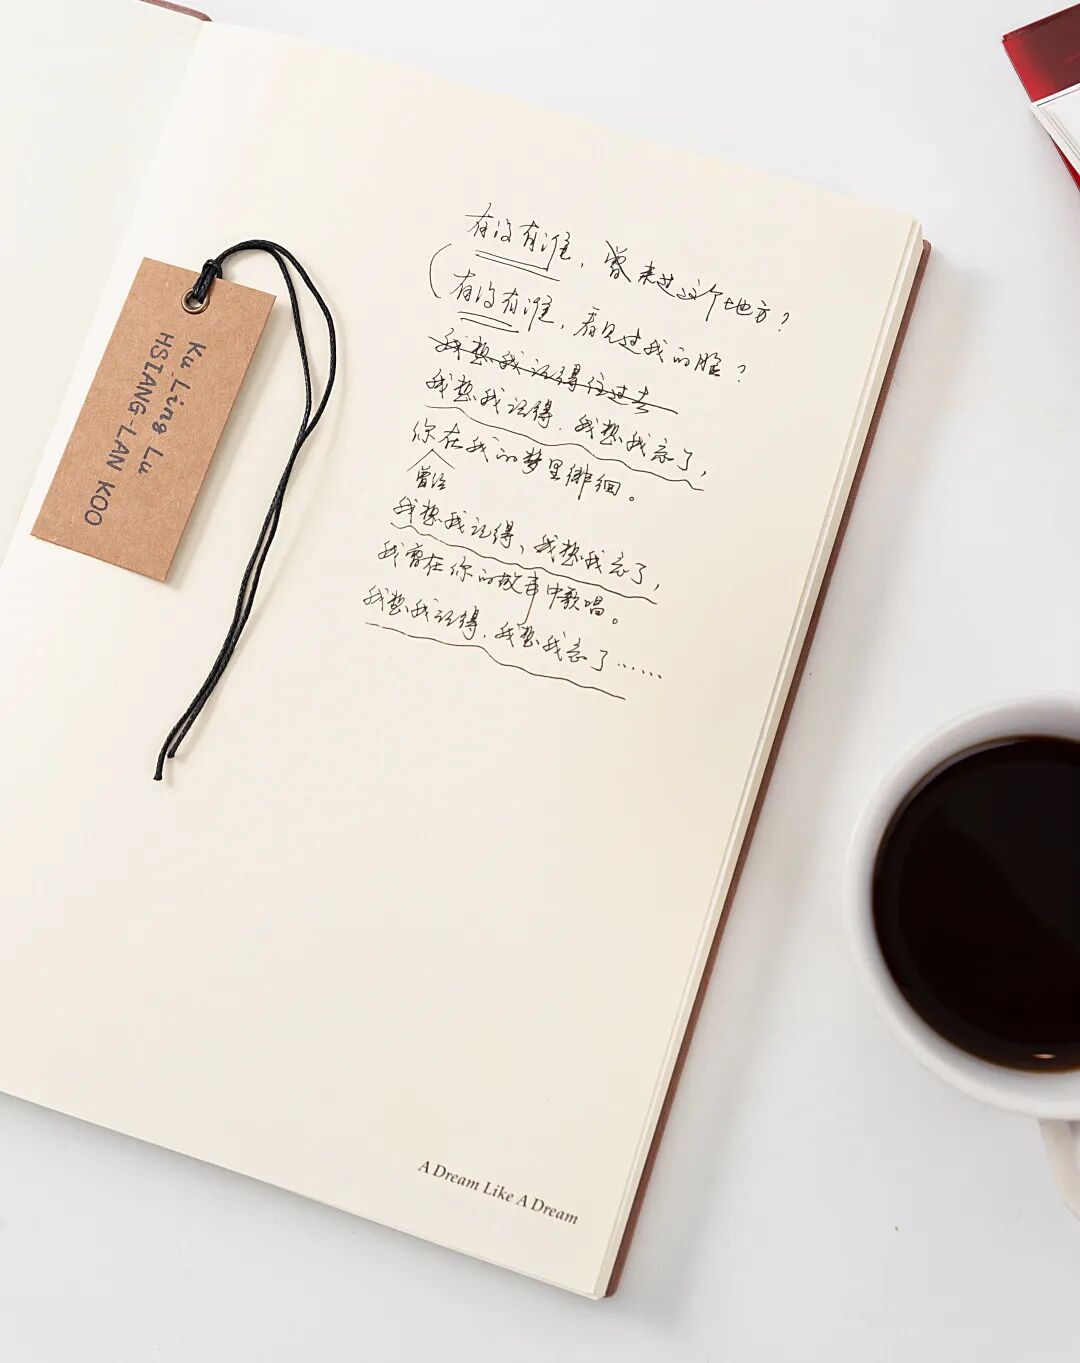 Ku_Ling Lu
HSIANG-LAN KOO
有没有谁，曾来过这个地方？
（有没有谁，看见过我的脸？
我想我记得住过去
我想我记得，我想我忘了，
你在我的梦里徘徊。
曾经
我想我记得，我想我忘了，
我曾在你的故事中歌唱。
我想我记得，我想我忘了……
A Dream Like A Dream